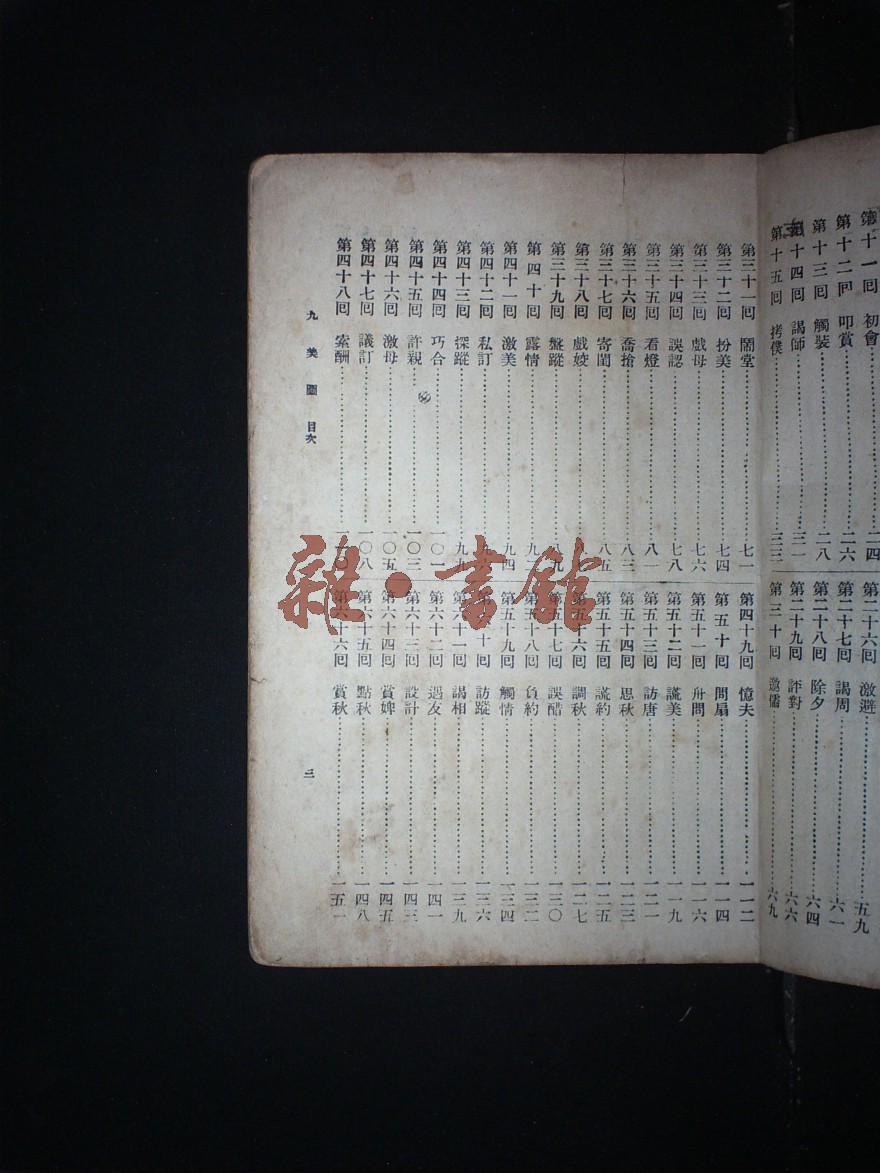 第十一回 初會 二四
第十二回 叩賞 二六
第十三回 觸裝 二八
第十四回 謁師 三一
第十五回 拷僕 三三
第二十六回 激避 五九
第二十七回 謁周 六一
第二十八回 除夕 六四
第二十九回 評對 六六
第三十回 邀儒 六九
第三十一回 鬧堂 七一
第三十二回 扮美 七四
第三十三回 戲母 七六
第三十四回 誤認 七八
第三十五回 看燈 八一
第三十六回 喬搶 八三
第三十七回 寄閨 八五
第三十八回 戲婈
第三十九回 盤蹤 八九
第四十回 露情 九二
第四十一回 激美 九四
第四十二回 私訂 九六
第四十三回 探蹤 九九
第四十四回 巧合 一〇一
第四十五回 許親 一〇三
第四十六回 激母 一〇五
第四十七回 議訂 一〇八
第四十八回 索酬 一一〇
第四十九回 憶夫 一一二
第五十回 問扇 一一四
第五十一回 舟問 一一六
第五十二回 謊美 一一九
第五十三回 訪唐 一二一
第五十四回 思秋 一二三
第五十五回 謊約 一二五
第五十六回 調秋 一二七
第五十七回 誤醋 一三〇
第五十八回 負約 一三二
第五十九回 觸情 一三四
第六十回 訪蹤 一三六
第六十一回 謁相 一三九
第六十二回 遇友 一四一
第六十三回 設計 一四三
第六十四回 賞婢 一四五
第六十五回 點秋 一四八
第六十六回 賞秋 一五一
九美圖 目次
三
雜·書館